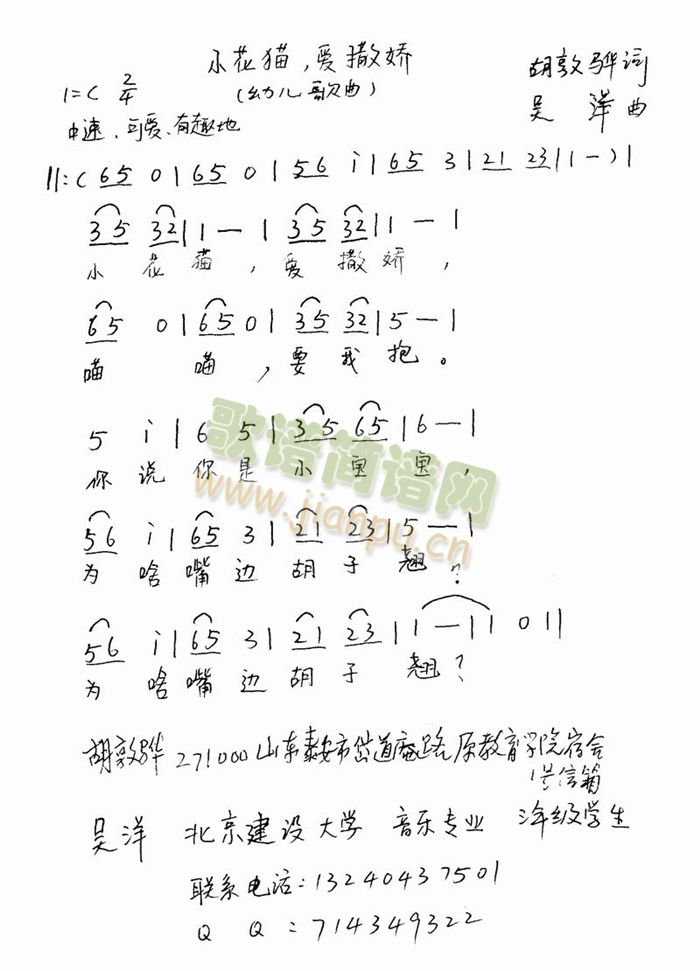 小花猫，爱撒娇
(幼儿歌曲)
胡敦骅词
吴 洋 曲
1=C 2/4
中速、可爱、有趣地
||:( 65 0 | 65 0 | 56 i | 65 3 | 21 23 | 1 - ) |
35 32 | 1 — | 35 32 | 1 — |
小 花 猫 ， 爱 撒 娇 ，
65 0 | 65 0 | 35 32 | 5 — |
喵 喵 ， 要 我 抱 。
5 i | 6 5 | 35 65 | 6 — |
你 说 你 是 小 宝 宝 ，
56 i | 65 3 | 21 23 | 5 — |
为 啥 嘴 边 胡 子 翘 ？
56 i | 65 3 | 21 23 | 1 — | 1 0 ||
为 啥 嘴 边 胡 子 翘 ？
胡敦骅 271000 山东泰安市岱道庵路原教育学院宿舍
信箱
吴洋 北京建设大学 音乐专业 年级学生
联系电话：13240437501
Q Q ：714349322
歌谱简谱网
www.jianpu.cn